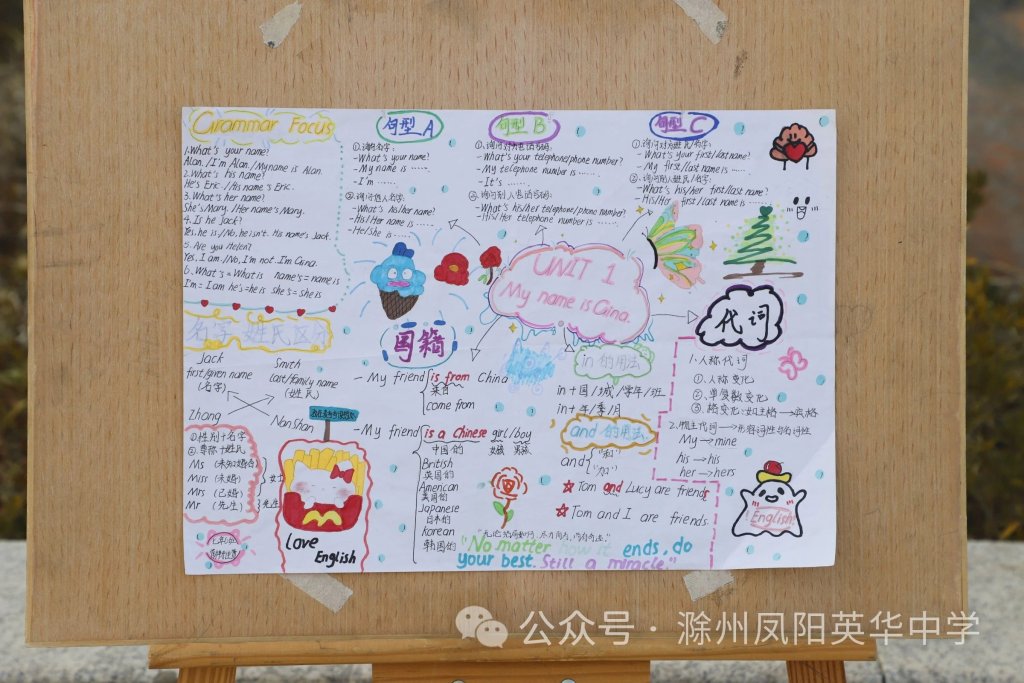 Grammar Focus
1. What's your name?
Alan. / I'm Alan. / My name is Alan.
2. What's his name?
He's Eric. / His name's Eric.
3. What's her name?
She's Mary. / Her name's Mary.
4. Is he Jack?
Yes, he is. / No, he isn't. His name's Jack.
5. Are you Helen?
Yes, I am. / No, I'm not. I'm Gina.
6. What's = What is name's = name is
I'm = I am he's = he is she's = she is
句型 A
①. 询问名字:
- What's your name?
- My name is ……
- I'm ……
②. 询问他人名字:
- What's his/her name?
- His/Her name is ……
- He/She is ……
句型 B
①. 询问对方电话号码:
- What's your telephone/phone number?
- My telephone number is ……
- It's ……
②. 询问别人电话号码:
- What's his/her telephone/phone number?
- His/Her telephone number is ……
句型 C
①. 询问对方姓氏/名字:
- What's your first/last name?
- My first/last name is ……
②. 询问别人姓氏/名字:
- What's his/her first/last name?
- His/Her first/last name is ……
UNIT 1
My name is Gina.
名字 姓氏区分
Jack Smith
first/given name last/family name
(名字) (姓氏)
Zhang Nan Shan
①. 性别+名字
②. 尊称+姓氏
Ms (未知婚否)
Miss (未婚)
Mrs (已婚)
女士
Mr (先生) 先生
Love
English
国籍
- My friend is from China
来自
come from
- My friend is a Chinese girl/boy
中国的 女孩 男孩
British
英国的
American
美国的
Japanese
日本的
Korean
韩国的
in 的用法
in + 国/城/学年/班
in + 年/季/月
and 的用法
and "和"
☆ Tom and Lucy are friends
☆ Tom and I are friends.
代词
1. 人称代词
①. 人称变化
②. 单复数变化
③. 格变化: 如主格→宾格
2. 物主代词→形容词性与名词性
My → mine
his → his
her → hers
English
"No matter how it ends, do
your best. Still a miracle."
公众号 · 滁州凤阳英华中学